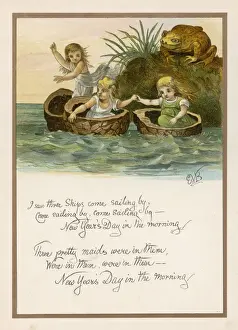 I saw three Ships come sailing by,
Come sailing by, come sailing by—
New Year's Day in the morning.
Three pretty maids were in them,
Were in them, were in them—
New Year's Day in the morning